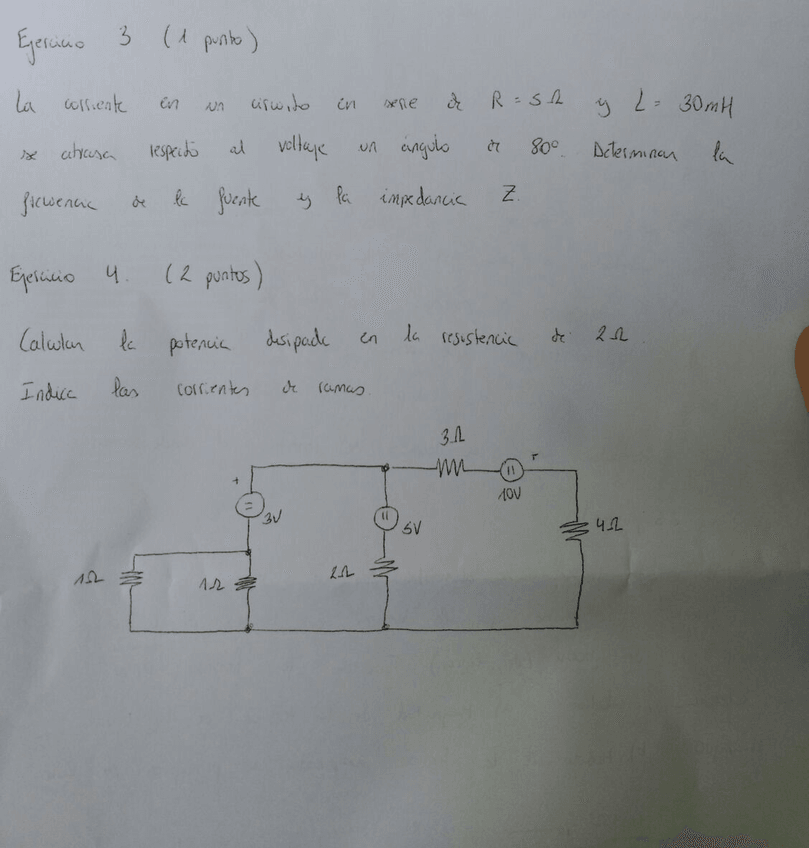 Ejercicio 3 (1 punto)
La corriente en un circuito en serie de R = 5Ω y L = 30mH
se atrasa respecto al voltaje un ángulo de 80º. Determinar la
frecuencia de la fuente y la impedancia Z.
Ejercicio 4. (2 puntos)
Calcular la potencia disipada en la resistencia de 2Ω.
Indica las corrientes de ramas.
3Ω
+
10V
3V
5V
4Ω
1Ω
1Ω
2Ω